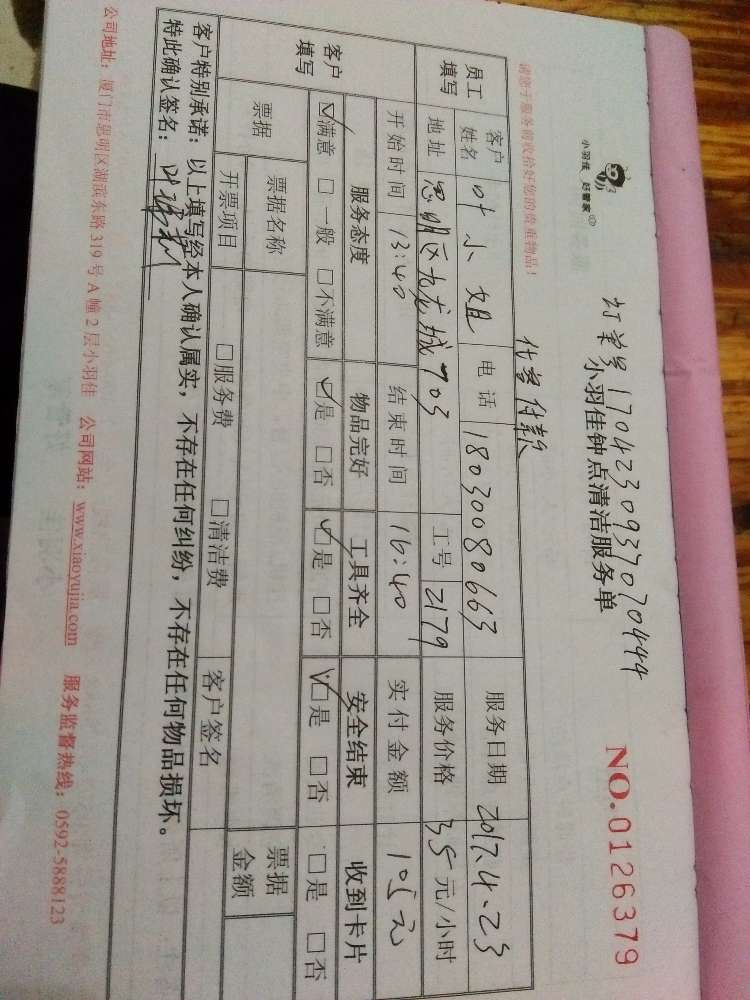 小羽佳 好管家
订单号 170423093707044
小羽佳钟点清洁服务单
NO.0126379
请您于服务前收拾好您的贵重物品!
代客付款
员工填写 客户姓名 叶小姐 电话 18030080663 服务日期 2017.4.23
地址 思明区九龙城703 工号 2179 服务价格 35元/小时
开始时间 13:40 结束时间 16:40 实付金额 105元
客户填写 服务态度 物品完好 工具齐全 安全结束 收到卡片
☑满意 □一般 □不满意 ☑是 □否 ☑是 □否 ☑是 □否 □是 □否
票据 票据名称 票据金额
开票项目 □服务费 □清洁费 客户签名
客户特别承诺:以上填写经本人确认属实,不存在任何纠纷,不存在任何物品损坏。
特此确认签名:
公司地址:厦门市思明区湖滨东路319号A幢2层小羽佳 公司网站:www.xiaoyujia.com 服务监督热线:0592-5888123